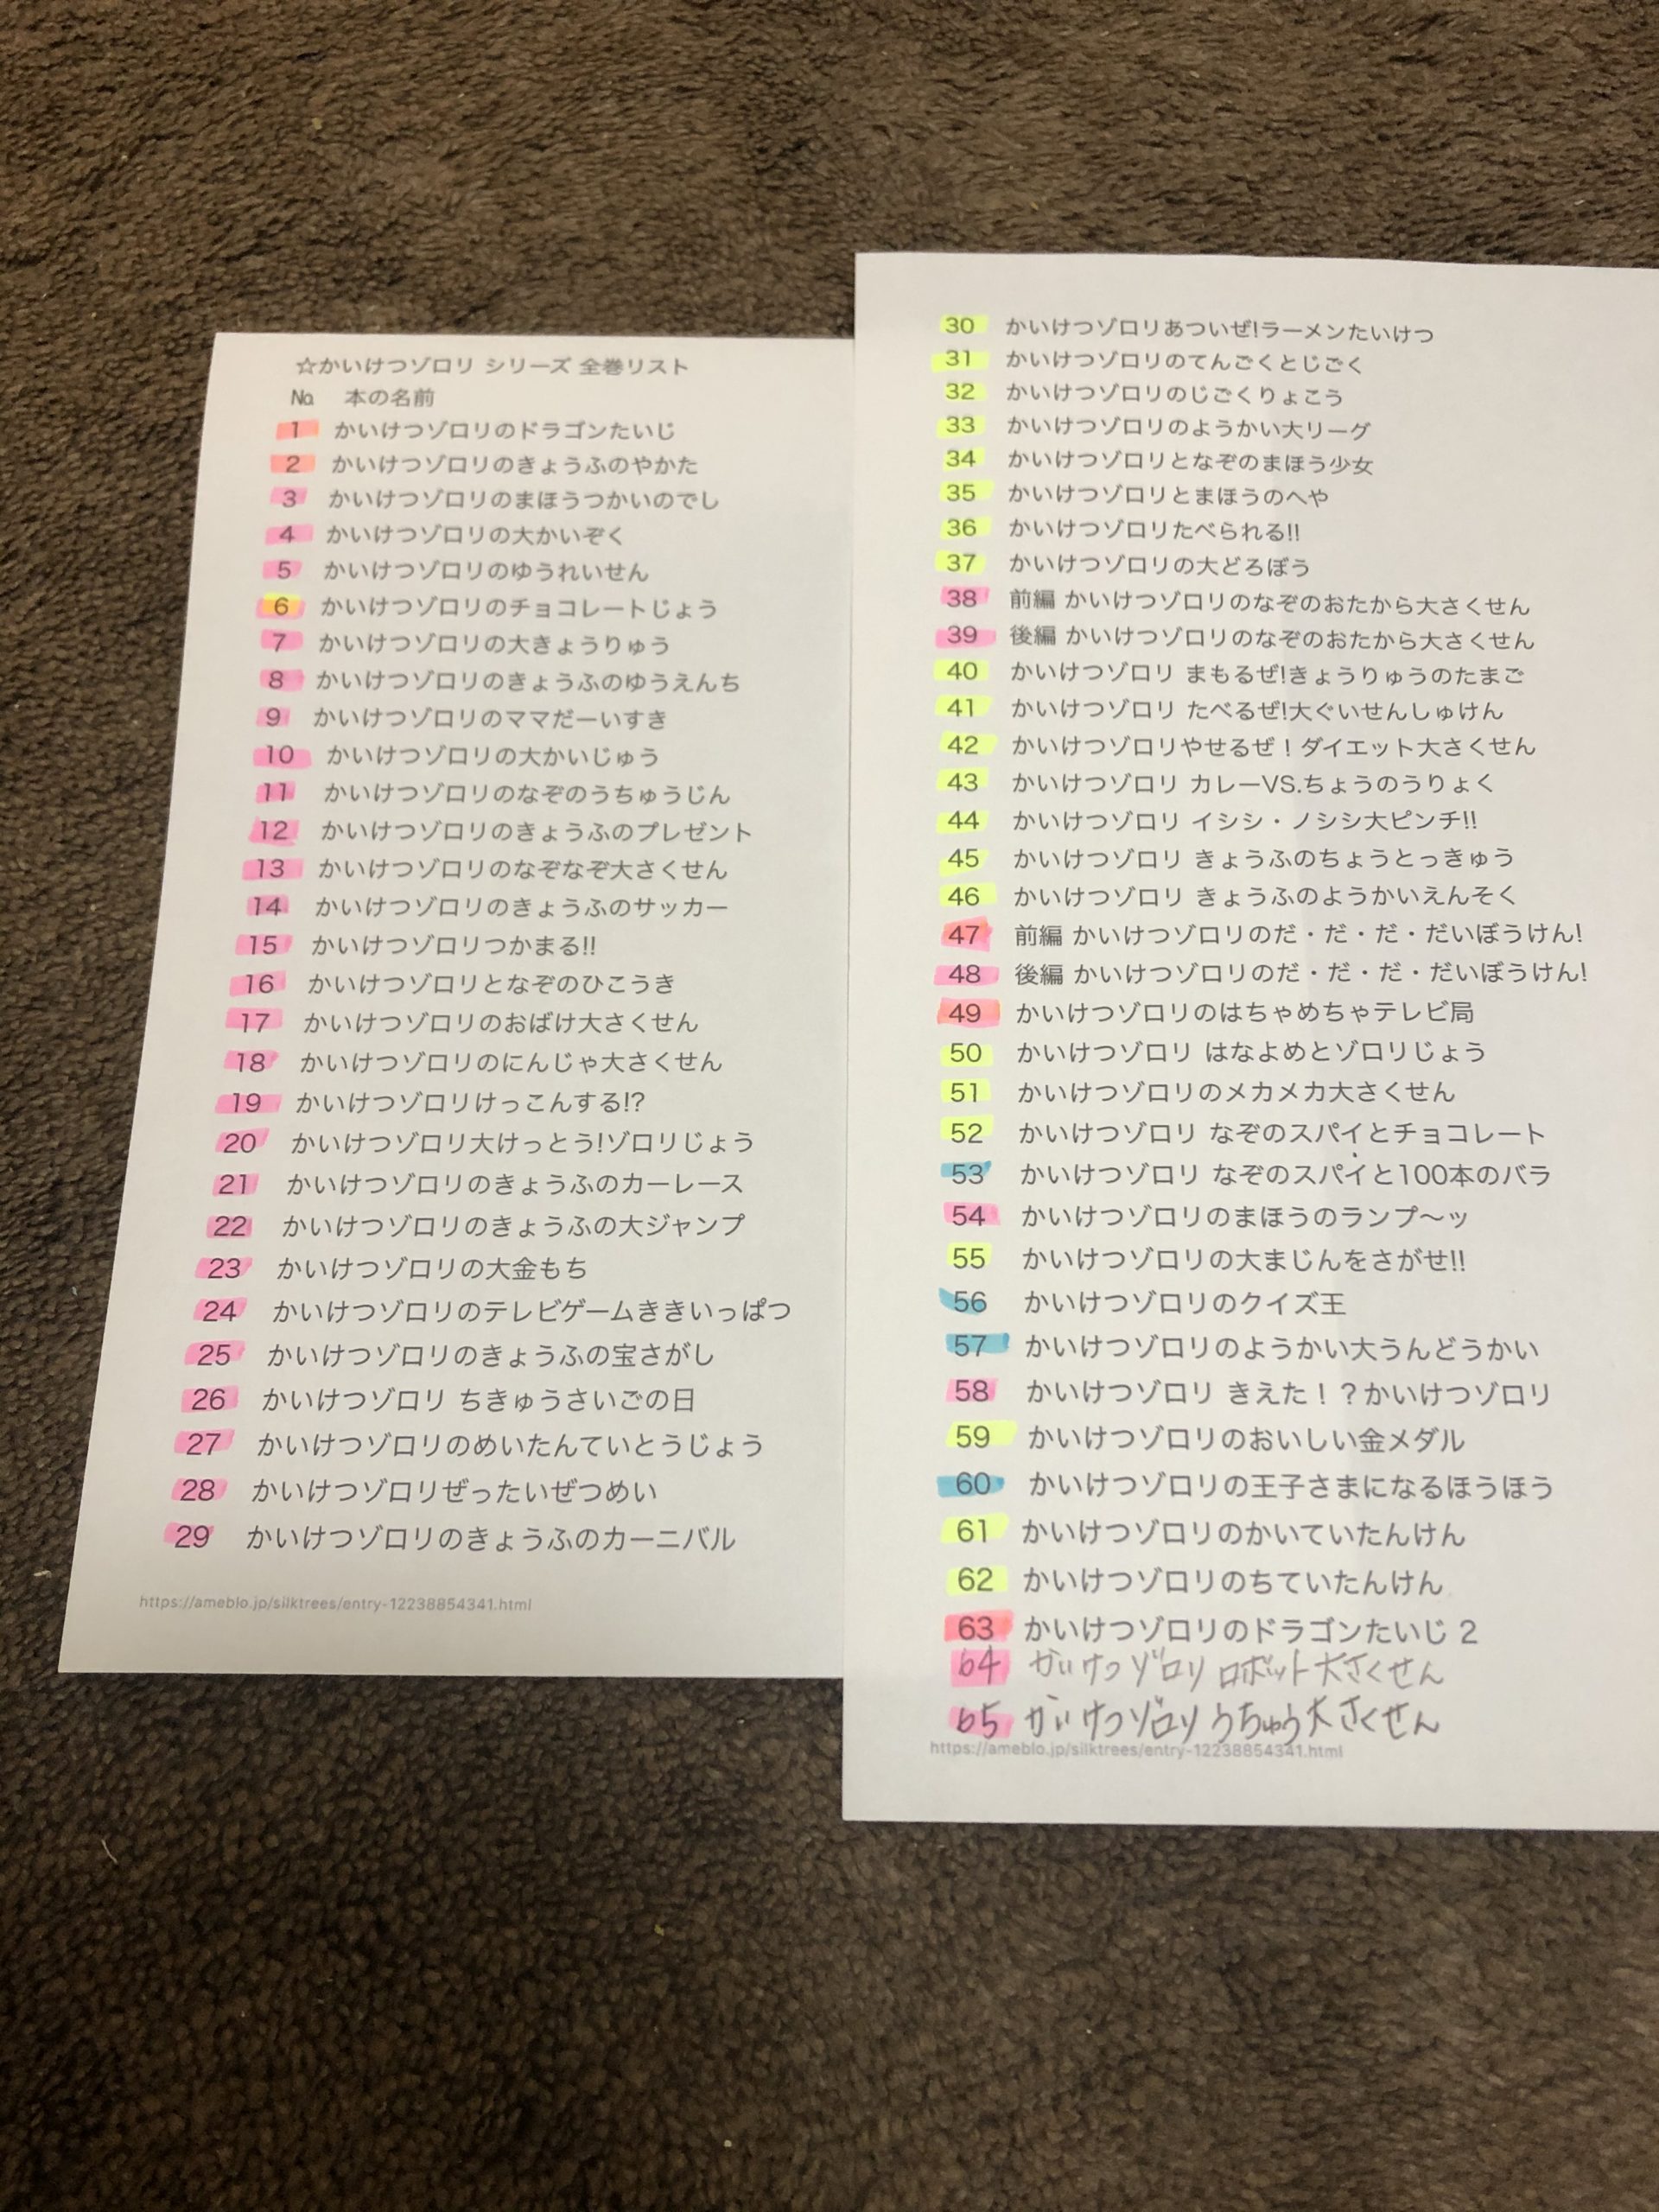 ☆かいけつゾロリ シリーズ 全巻リスト
No. 本の名前
1 かいけつゾロリのドラゴンたいじ
2 かいけつゾロリのきょうふのやかた
3 かいけつゾロリのまほうつかいのでし
4 かいけつゾロリの大かいぞく
5 かいけつゾロリのゆうれいせん
6 かいけつゾロリのチョコレートじょう
7 かいけつゾロリの大きょうりゅう
8 かいけつゾロリのきょうふのゆうえんち
9 かいけつゾロリのママだーいすき
10 かいけつゾロリの大かいじゅう
11 かいけつゾロリのなぞのうちゅうじん
12 かいけつゾロリのきょうふのプレゼント
13 かいけつゾロリのなぞなぞ大さくせん
14 かいけつゾロリのきょうふのサッカー
15 かいけつゾロリつかまる!!
16 かいけつゾロリとなぞのひこうき
17 かいけつゾロリのおばけ大さくせん
18 かいけつゾロリのにんじゃ大さくせん
19 かいけつゾロリけっこんする!?
20 かいけつゾロリ大けっとう!ゾロリじょう
21 かいけつゾロリのきょうふのカーレース
22 かいけつゾロリのきょうふの大ジャンプ
23 かいけつゾロリの大金もち
24 かいけつゾロリのテレビゲームききいっぱつ
25 かいけつゾロリのきょうふの宝さがし
26 かいけつゾロリ ちきゅうさいごの日
27 かいけつゾロリのめいたんていとうじょう
28 かいけつゾロリぜったいぜつめい
29 かいけつゾロリのきょうふのカーニバル
https://ameblo.jp/silktrees/entry-12238854341.html
30 かいけつゾロリあついぜ!ラーメンたいけつ
31 かいけつゾロリのてんごくとじごく
32 かいけつゾロリのじごくりょこう
33 かいけつゾロリのようかい大リーグ
34 かいけつゾロリとなぞのまほう少女
35 かいけつゾロリとまほうのへや
36 かいけつゾロリたべられる!!
37 かいけつゾロリの大どろぼう
38 前編 かいけつゾロリのなぞのおたから大さくせん
39 後編 かいけつゾロリのなぞのおたから大さくせん
40 かいけつゾロリ まもるぜ!きょうりゅうのたまご
41 かいけつゾロリ たべるぜ!大ぐいせんしゅけん
42 かいけつゾロリやせるぜ！ダイエット大さくせん
43 かいけつゾロリ カレーVS.ちょうのうりょく
44 かいけつゾロリ イシシ・ノシシ大ピンチ!!
45 かいけつゾロリ きょうふのちょうとっきゅう
46 かいけつゾロリ きょうふのようかいえんそく
47 前編 かいけつゾロリのだ・だ・だ・だいぼうけん!
48 後編 かいけつゾロリのだ・だ・だ・だいぼうけん!
49 かいけつゾロリのはちゃめちゃテレビ局
50 かいけつゾロリ はなよめとゾロリじょう
51 かいけつゾロリのメカメカ大さくせん
52 かいけつゾロリ なぞのスパイとチョコレート
53 かいけつゾロリ なぞのスパイと100本のバラ
54 かいけつゾロリのまほうのランプ〜ッ
55 かいけつゾロリの大まじんをさがせ!!
56 かいけつゾロリのクイズ王
57 かいけつゾロリのようかい大うんどうかい
58 かいけつゾロリ きえた！？かいけつゾロリ
59 かいけつゾロリのおいしい金メダル
60 かいけつゾロリの王子さまになるほうほう
61 かいけつゾロリのかいていたんけん
62 かいけつゾロリのちていたんけん
63 かいけつゾロリのドラゴンたいじ 2
64 かいけつゾロリ ロボット大さくせん
65 かいけつゾロリ うちゅう大さくせん
https://ameblo.jp/silktrees/entry-12238854341.html